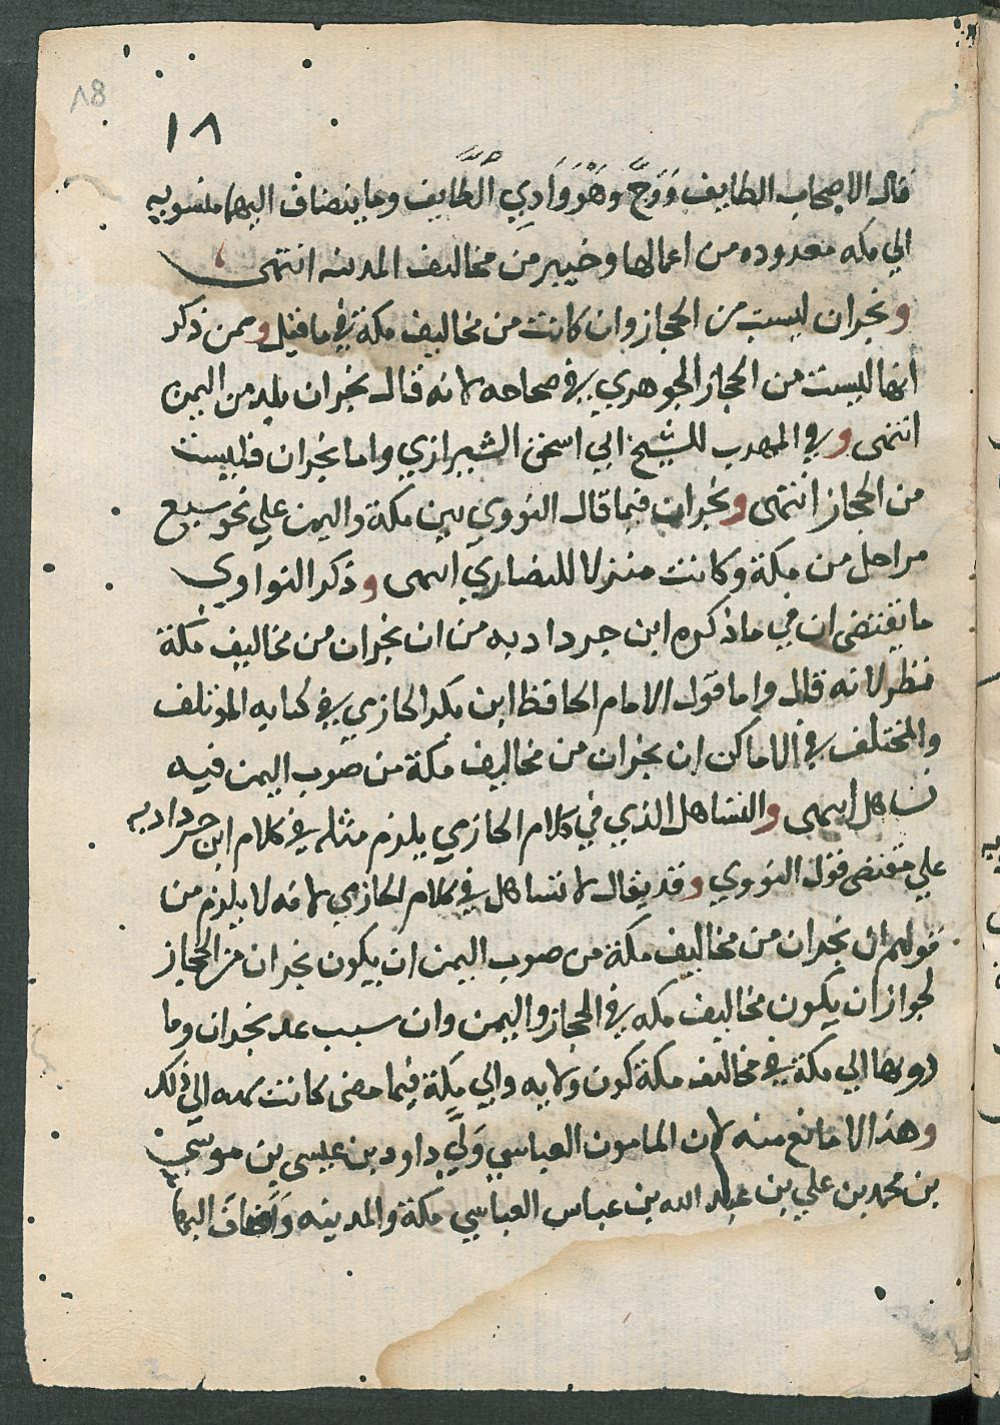 ٨٨
١٨
قال الاصحاب الطايف وَوَجَّ وهْوَ وَادِي الطايف وما ينضاف اليها منسوبه
الي مكه معدوده من اعمالها وخيبر من مخاليف المدينه انتهى
ونجران ليست من الحجاز وان كانت من مخاليف مكة في ما قيل وممن ذكر
انها ليست من الحجاز الجوهري في صحاحه لانه قال نجران بلد من اليمن
انتهى وفي المهدب للشيخ ابي اسحق الشيرازي واما نجران فليست
من الحجاز انتهى ونجران فيما قال النووي بين مكة واليمن علي نحو سبع
مراحل من مكة وكانت منزلا للنصاري انتهى وذكر النواوي
ما يقتضى ان في ما ذكره ابن جردادبه من ان نجران من مخاليف مكة
نظر لانه قال واما قول الامام الحافظ ابن بكر الحازمي في كتابه المؤتلف
والمختلف في الاماكن ان نجران من مخاليف مكة من صوب اليمن فيه
تساهل انتهى والتساهل الذي في كلام الحازمي يلزم مثله في كلام ابن جردادبه
علي مقتضى قول النووي وقد يقال لا تساهل في كلام الحازمي لانه لا يلزم من
قولهم ان نجران من مخاليف مكة من صوب اليمن ان يكون نجران من الحجاز
لجواز ان يكون مخاليف مكه في الحجاز واليمن وان سبب عد نجران وما
دونها الي مكة في مخاليف مكة كون ولايه والي مكة فيما مضى كانت الي ذلك
وهذا لا مانع منه لان المامون العباسي وَلَّي داود بن عيسى بن موسى
بن محمد بن علي بن عبد الله بن عباس العباسي مكة والمدينه وَأَضافَ اليها